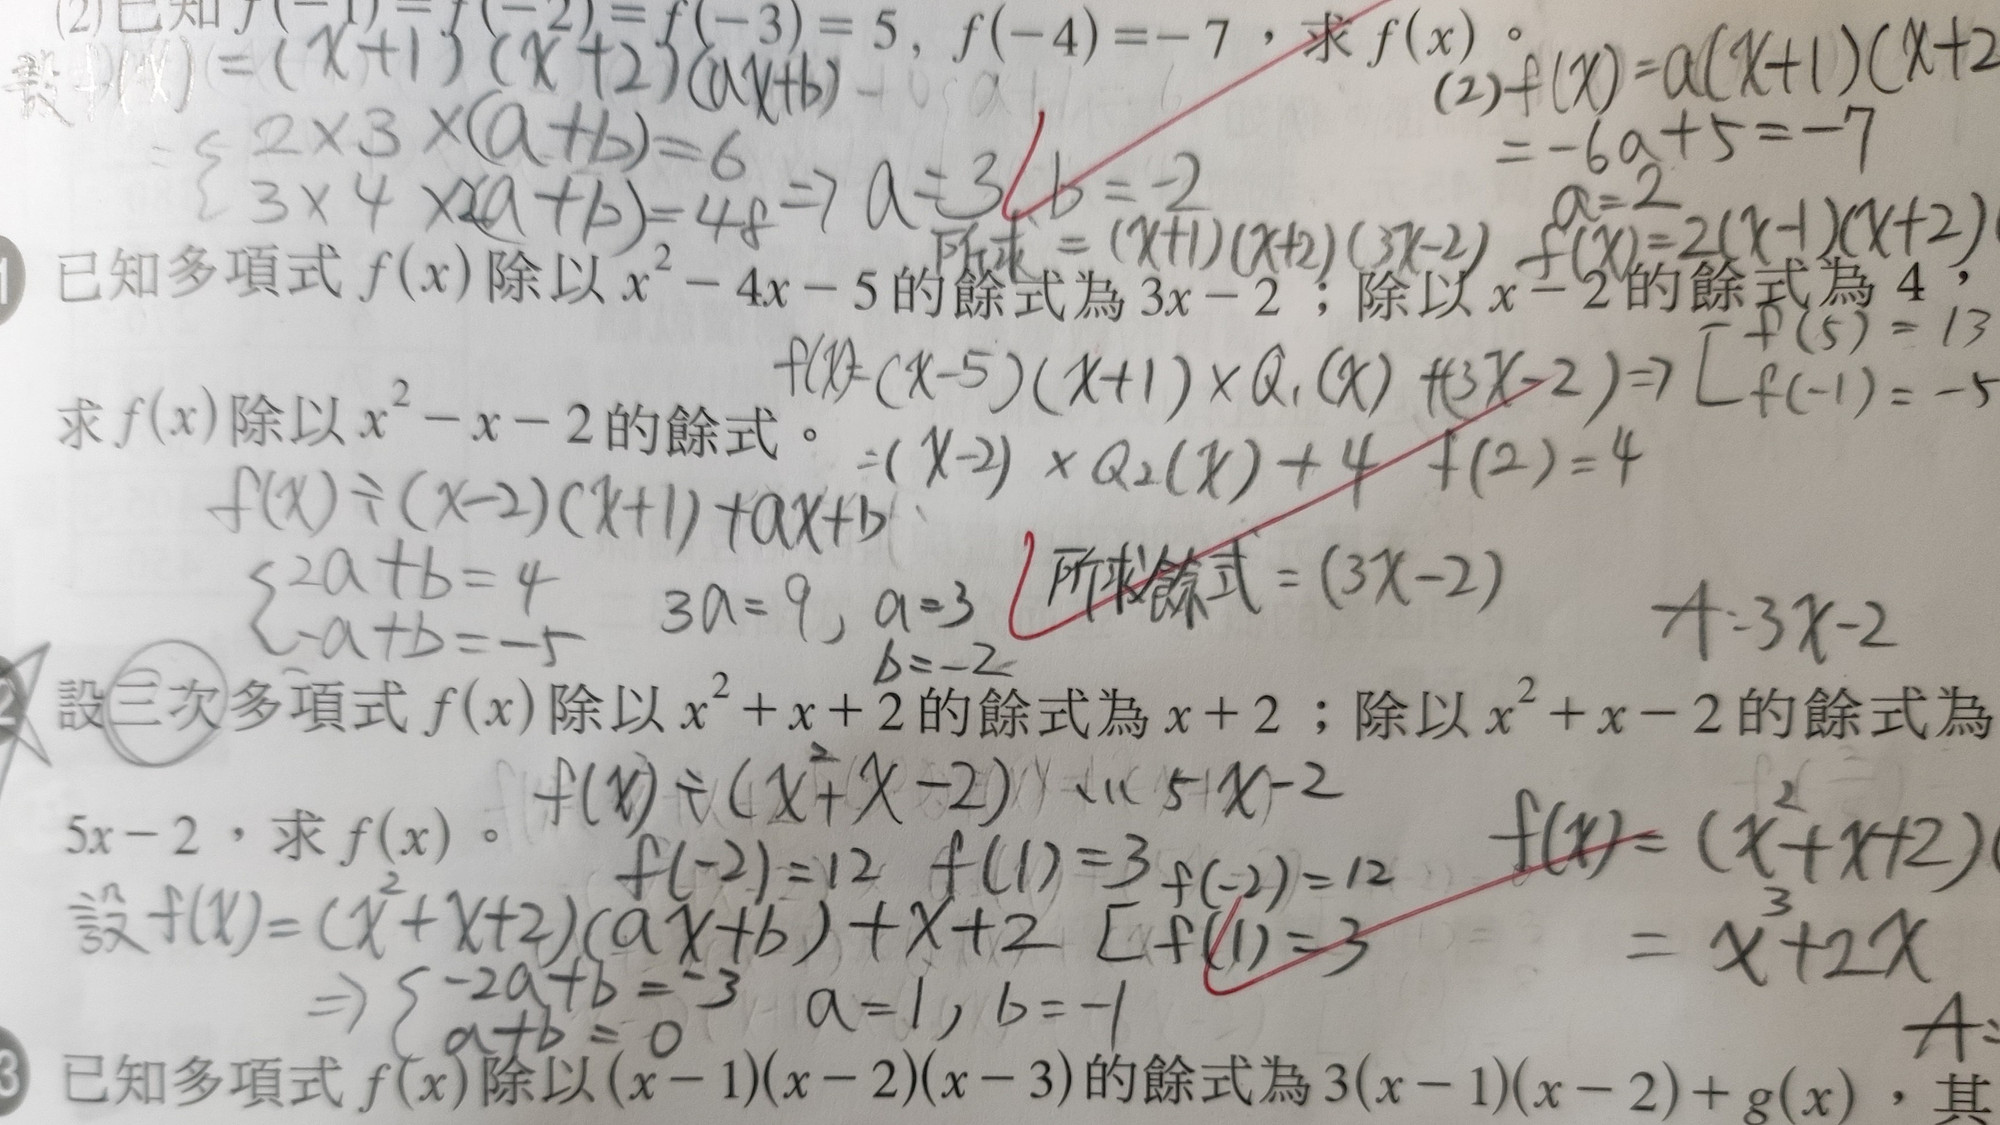 (2)已知 f(−1)=f(−2)=f(−3)=5, f(−4)=−7，求 f(x)。
設f(x)=(x+1)(x+2)(ax+b)
(2) f(x)=a(x+1)(x+2
{2×3×(a+b)=6
=-6a+5=-7
{3×4×(2a+b)=48 ⇒ a=3, b=-2
a=2
所求 =(x+1)(x+2)(3x-2)
f(x)=2(x-1)(x+2)(
1 已知多項式 f(x) 除以 x²−4x−5 的餘式為 3x−2；除以 x−2 的餘式為 4，
f(x)=(x-5)(x+1)×Q₁(x)+(3x-2) ⇒ [f(5)=13
f(-1)=-5
求 f(x) 除以 x²−x−2 的餘式。
=(x-2)×Q₂(x)+4 f(2)=4
f(x)÷(x-2)(x+1)+ax+b
{2a+b=4
{-a+b=-5
3a=9, a=3
b=-2
所求餘式=(3x-2)
A:3x-2
2 設三次多項式 f(x) 除以 x²+x+2 的餘式為 x+2；除以 x²+x−2 的餘式為
f(x)÷(x²+x-2) … 5x-2
5x−2，求 f(x)。
f(-2)=12 f(1)=3
f(x)=(x²+x+2)(
設f(x)=(x²+x+2)(ax+b)+x+2
[f(-2)=12
f(1)=3
=x³+2x
⇒{-2a+b=-3
a+b=0
a=1, b=-1
A:
3 已知多項式 f(x) 除以 (x−1)(x−2)(x−3) 的餘式為 3(x−1)(x−2)+g(x)，其